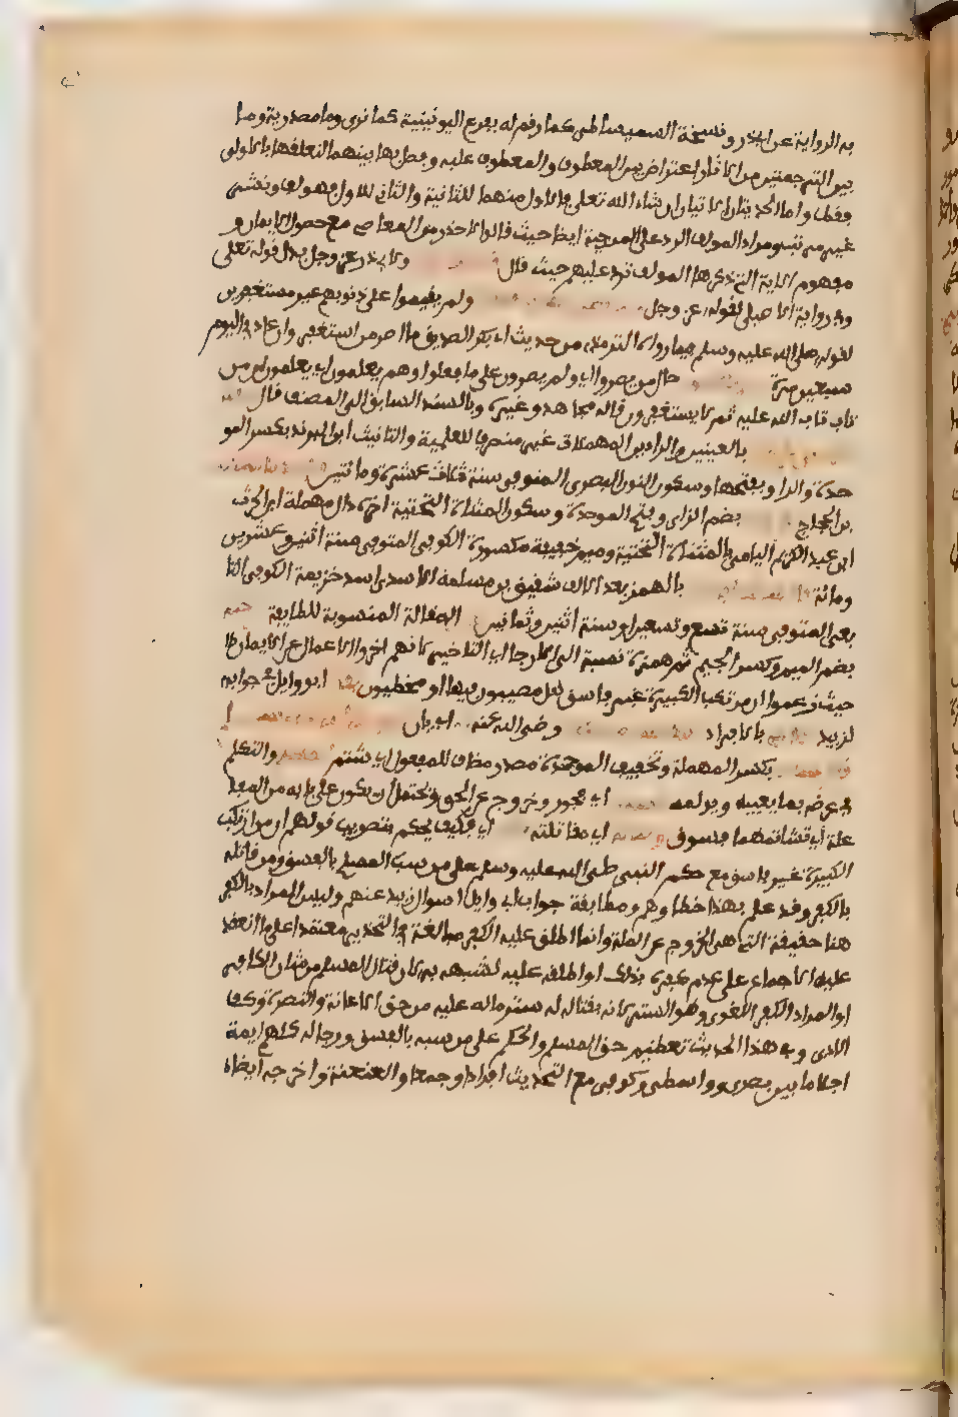 به الرواية عن ابي ذر ونسخة السميساطى كما رقم له بفرع اليونينية كما ترى وما مصدرية وما
بين الترجمتين من الاثار اعتراض بين المعطوف والمعطوف عليه وفصل بها بينهما لتعلقها بالاولى
فقط واما الحديثان الاتيان ان شاء الله تعلى فالاول منهما للثانية والثانى للاولى فهو لف ونشر
غير مرتب ومراد المولف الرد على المرجية ايضا حيث قالوا لا حذر من المعاصي مع حصول الايمان و
مفهوم الاية التي ذكرها المولف ترد عليهم حيث قال ولابي ذر عز وجل بدل قوله تعلى
وفي رواية الاصيلى لقوله عز وجل ولم يقيموا على ذنوبهم غير مستغفرين
لقوله صلى الله عليه وسلم فيما رواه الترمذي من حديث ابي بكر الصديق ما اصر من استغفر وان عاد في اليوم
سبعين مرة حال من يصروا اي ولم يصرون على ما فعلوا وهم يعلمون اي يعلمون ان من
تاب تاب الله عليه ثم لا يستغفرون قاله مجاهد وغيره وبالسند السابق الى المصنف قال
بالعينين والرا دين المهملات غير منصرف للعلمية والتانيث ابو البرند بكسر المو
حدة والرا وبفتحها وسكون النون البصرى المتوفى سنة ثلاث عشرة ومائتين
بن الحجاج بضم الزاى وفتح الموحدة وسكون المثناة التحتية اخره دال مهملة ابن الحرث
ابن عبد الكريم اليامى بالمثناة التحتية وميم خفيفة مكسورة الكوفى المتوفى سنة اثنين وعشرين
ومائة بالهمز بعد الالف شقيق بن مسلمة الاسدى اسد خزيمة الكوفى التا
بعى المتوفى سنة تسع وتسعين او سنة اثنين وثمانين المقالة المنسوبة للطايفة
بضم الميم وكسر الجيم ثم همزة نسبة الى الارجا اي التاخير لانهم اخروا الاعمال عن الايمان
حيث زعموا ان مرتكب الكبيرة غير فاسق هل مصيبون فيها او مخطيون ابو وايل في جوابه
لزبيد بالافراد رضى الله عنه اي بان
بكسر المهملة وتخفيف الموحدة مصدر مضاف للمفعول اي شتم والتكلم
في عرضه بما يعيبه ويولمه اي فجور وخروج عن الحق ويحتمل ان يكون على بابه من المفا
علة اي تشاتمهما فسوق اي مقاتلته اي فكيف يحكم بتصويب قولهم ان مرتكب
الكبيرة غير فاسق مع حكم النبى صلى الله عليه وسلم على من سب المسلم بالفسق ومن قاتله
بالكفر وقد علم بهذا خطاوهم ومطابقة جواب ابي وايل لسوال زبيد عنهم وليس المراد بالكفر
هنا حقيقة التي هى الخروج عن الملة وانما اطلق عليه الكفر مبالغة في التحذير معتمدا على ما انعقد
عليه الاجماع على عدم كفره بذلك او اطلقه عليه لشبهه به لان قتال المسلم من شان الكافر
او المراد الكفر اللغوى وهو الستر لانه بقتاله له ستر ماله عليه من حق الاعانة والنصرة وكف
الاذى وفي هذا الحديث تعظيم حق المسلم والحكم على من سبه بالفسق ورجاله كلهم ايمة
اجلا ما بين بصرى وواسطى وكوفى مع التحديث افرادا وجمعا والعنعنة واخرجه ايضا